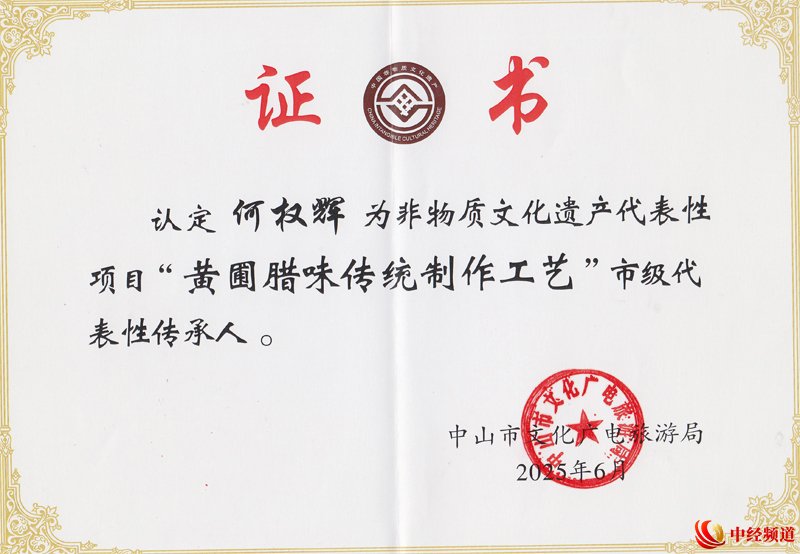 证书
中国非物质文化遗产
CHINA INTANGIBLE CULTURAL HERITAGE
认定 何权辉 为非物质文化遗产代表性
项目“黄圃腊味传统制作工艺”市级代
表性传承人。
中山市文化广电旅游局
中山市文化广电旅游局
2025年6月
中经频道